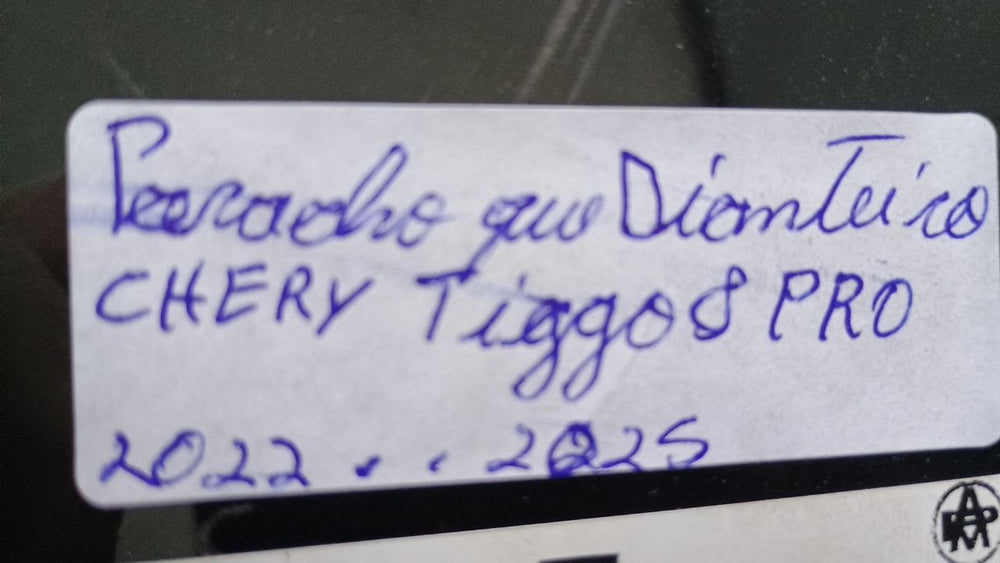 Parachoque Dianteiro
CHERY Tiggo 8 PRO
2022 . . 2025